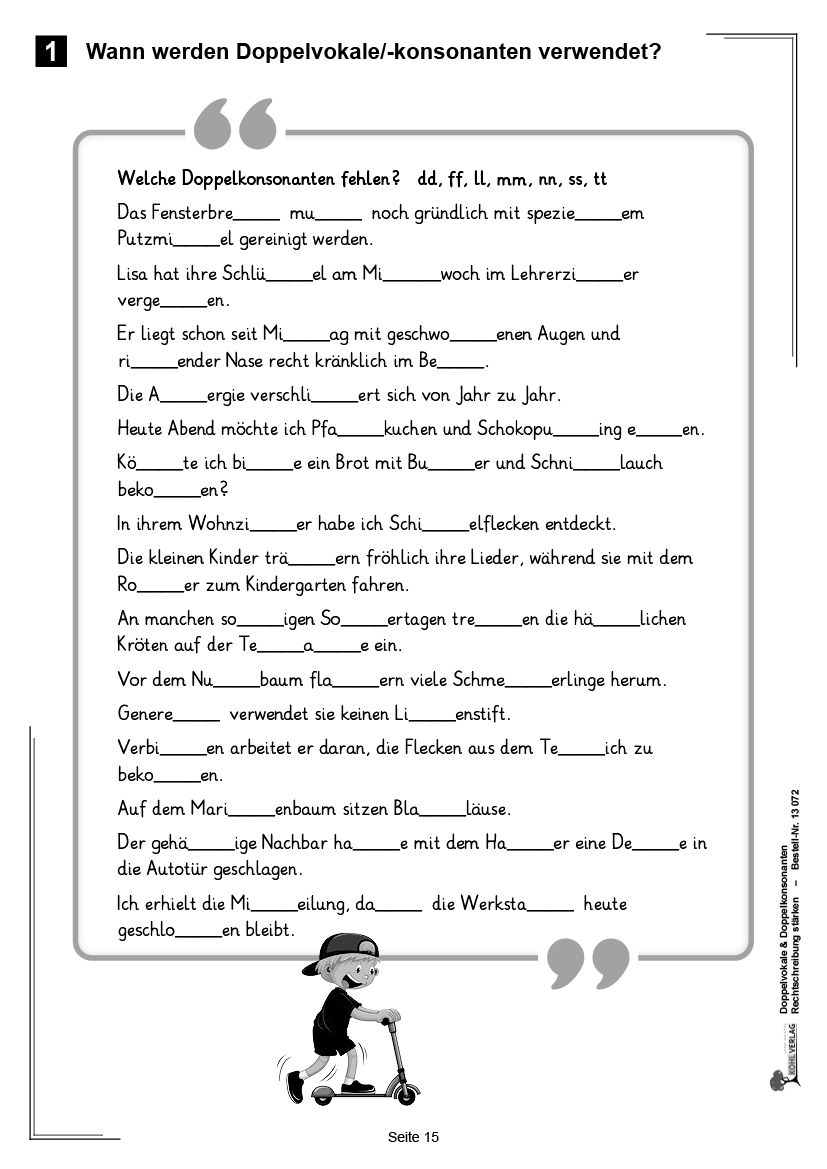 1 Wann werden Doppelvokale/-konsonanten verwendet?
Welche Doppelkonsonanten fehlen? dd, ff, ll, mm, nn, ss, tt
Das Fensterbre_____ mu_____ noch gründlich mit spezie_____em
Putzmi_____el gereinigt werden.
Lisa hat ihre Schlü_____el am Mi______woch im Lehrerzi_____er
verge_____en.
Er liegt schon seit Mi_____ag mit geschwo_____enen Augen und
ri_____ender Nase recht kränklich im Be_____.
Die A_____ergie verschli_____ert sich von Jahr zu Jahr.
Heute Abend möchte ich Pfa_____kuchen und Schokopu_____ing e_____en.
Kö_____te ich bi_____e ein Brot mit Bu_____er und Schni_____lauch
beko_____en?
In ihrem Wohnzi_____er habe ich Schi_____elflecken entdeckt.
Die kleinen Kinder trä_____ern fröhlich ihre Lieder, während sie mit dem
Ro_____er zum Kindergarten fahren.
An manchen so_____igen So_____ertagen tre_____en die hä_____lichen
Kröten auf der Te_____a_____e ein.
Vor dem Nu_____baum fla_____ern viele Schme_____erlinge herum.
Genere_____ verwendet sie keinen Li_____enstift.
Verbi_____en arbeitet er daran, die Flecken aus dem Te_____ich zu
beko_____en.
Auf dem Mari_____enbaum sitzen Bla_____läuse.
Der gehä_____ige Nachbar ha_____e mit dem Ha_____er eine De_____e in
die Autotür geschlagen.
Ich erhielt die Mi_____eilung, da_____ die Werksta_____ heute
geschlo_____en bleibt.
Doppelvokale & Doppelkonsonanten
Rechtschreibung stärken – Bestell-Nr. 13 072
KOHL VERLAG
Seite 15